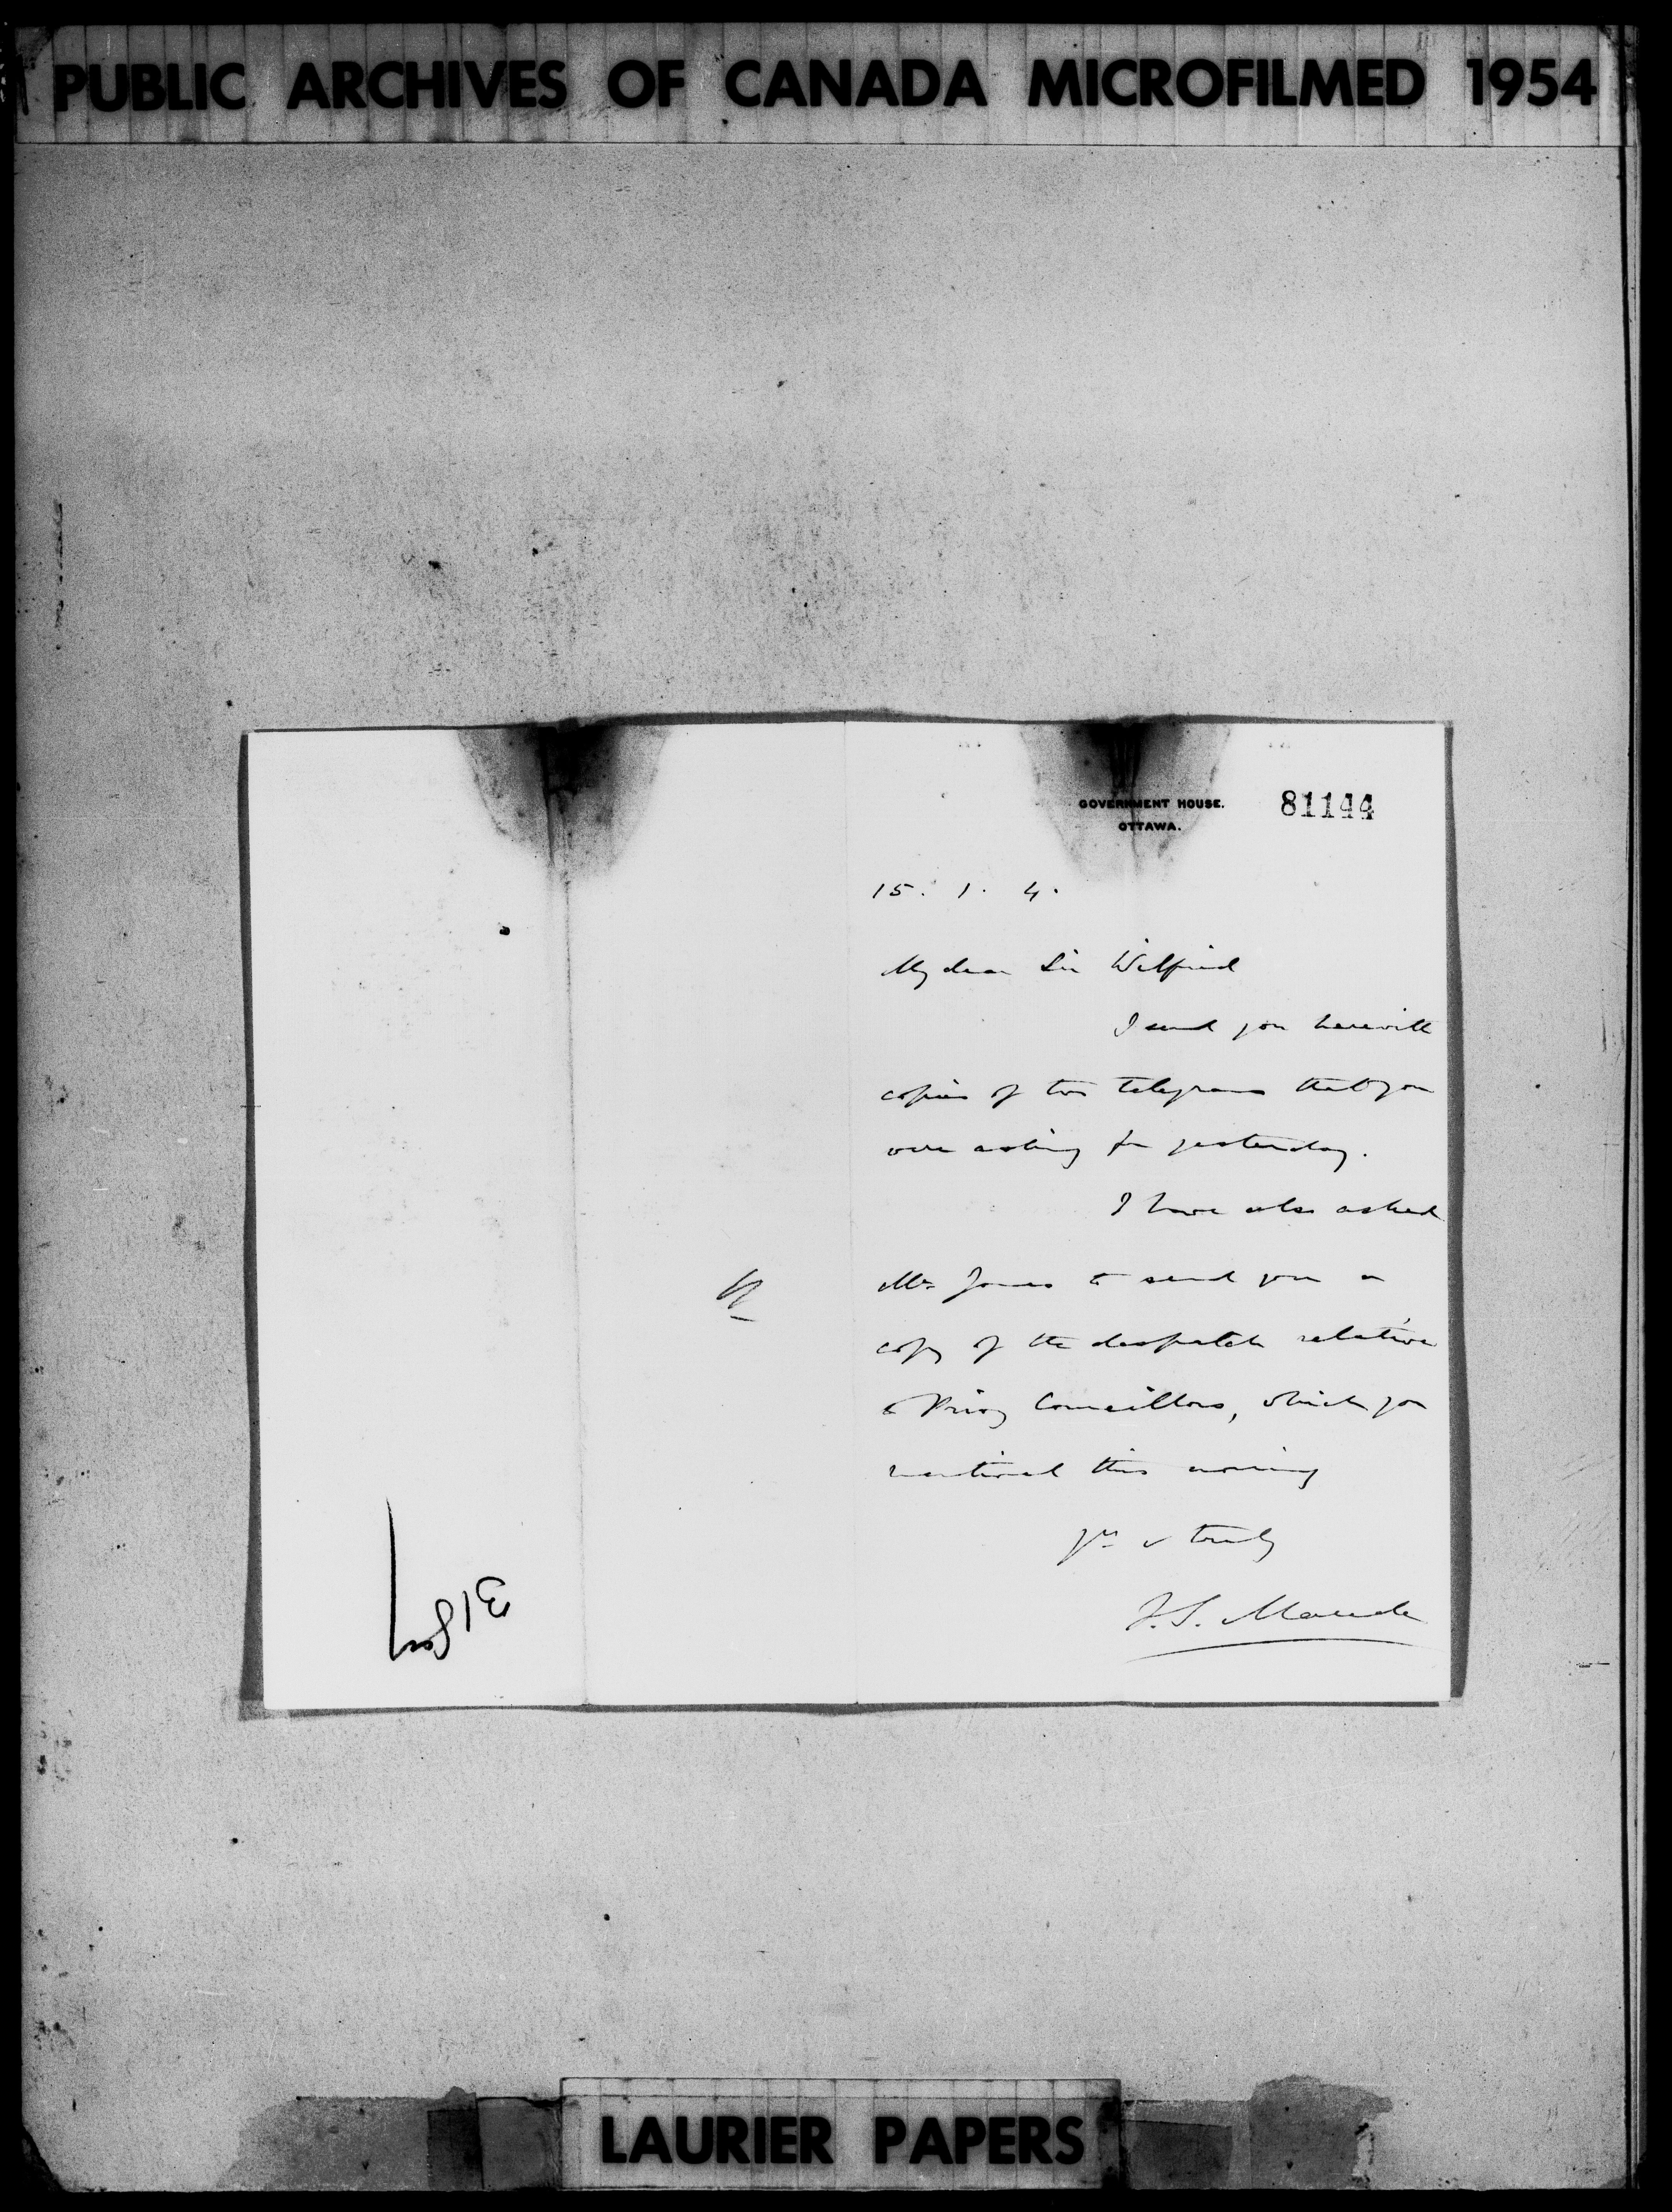 PUBLIC ARCHIVES OF CANADA MICROFILMED 1954
GOVERNMENT HOUSE.
OTTAWA.
81144
15. 1. 4.
My dear Sir Wilfrid
I send you herewith
copies of two telegrams that you
were asking for yesterday.
I have also asked
Mr Jones to send you a
copy of the despatch relative
to Privy Councillors, which you
mentioned this evening
Yrs v truly
F.S. Maude
LAURIER PAPERS